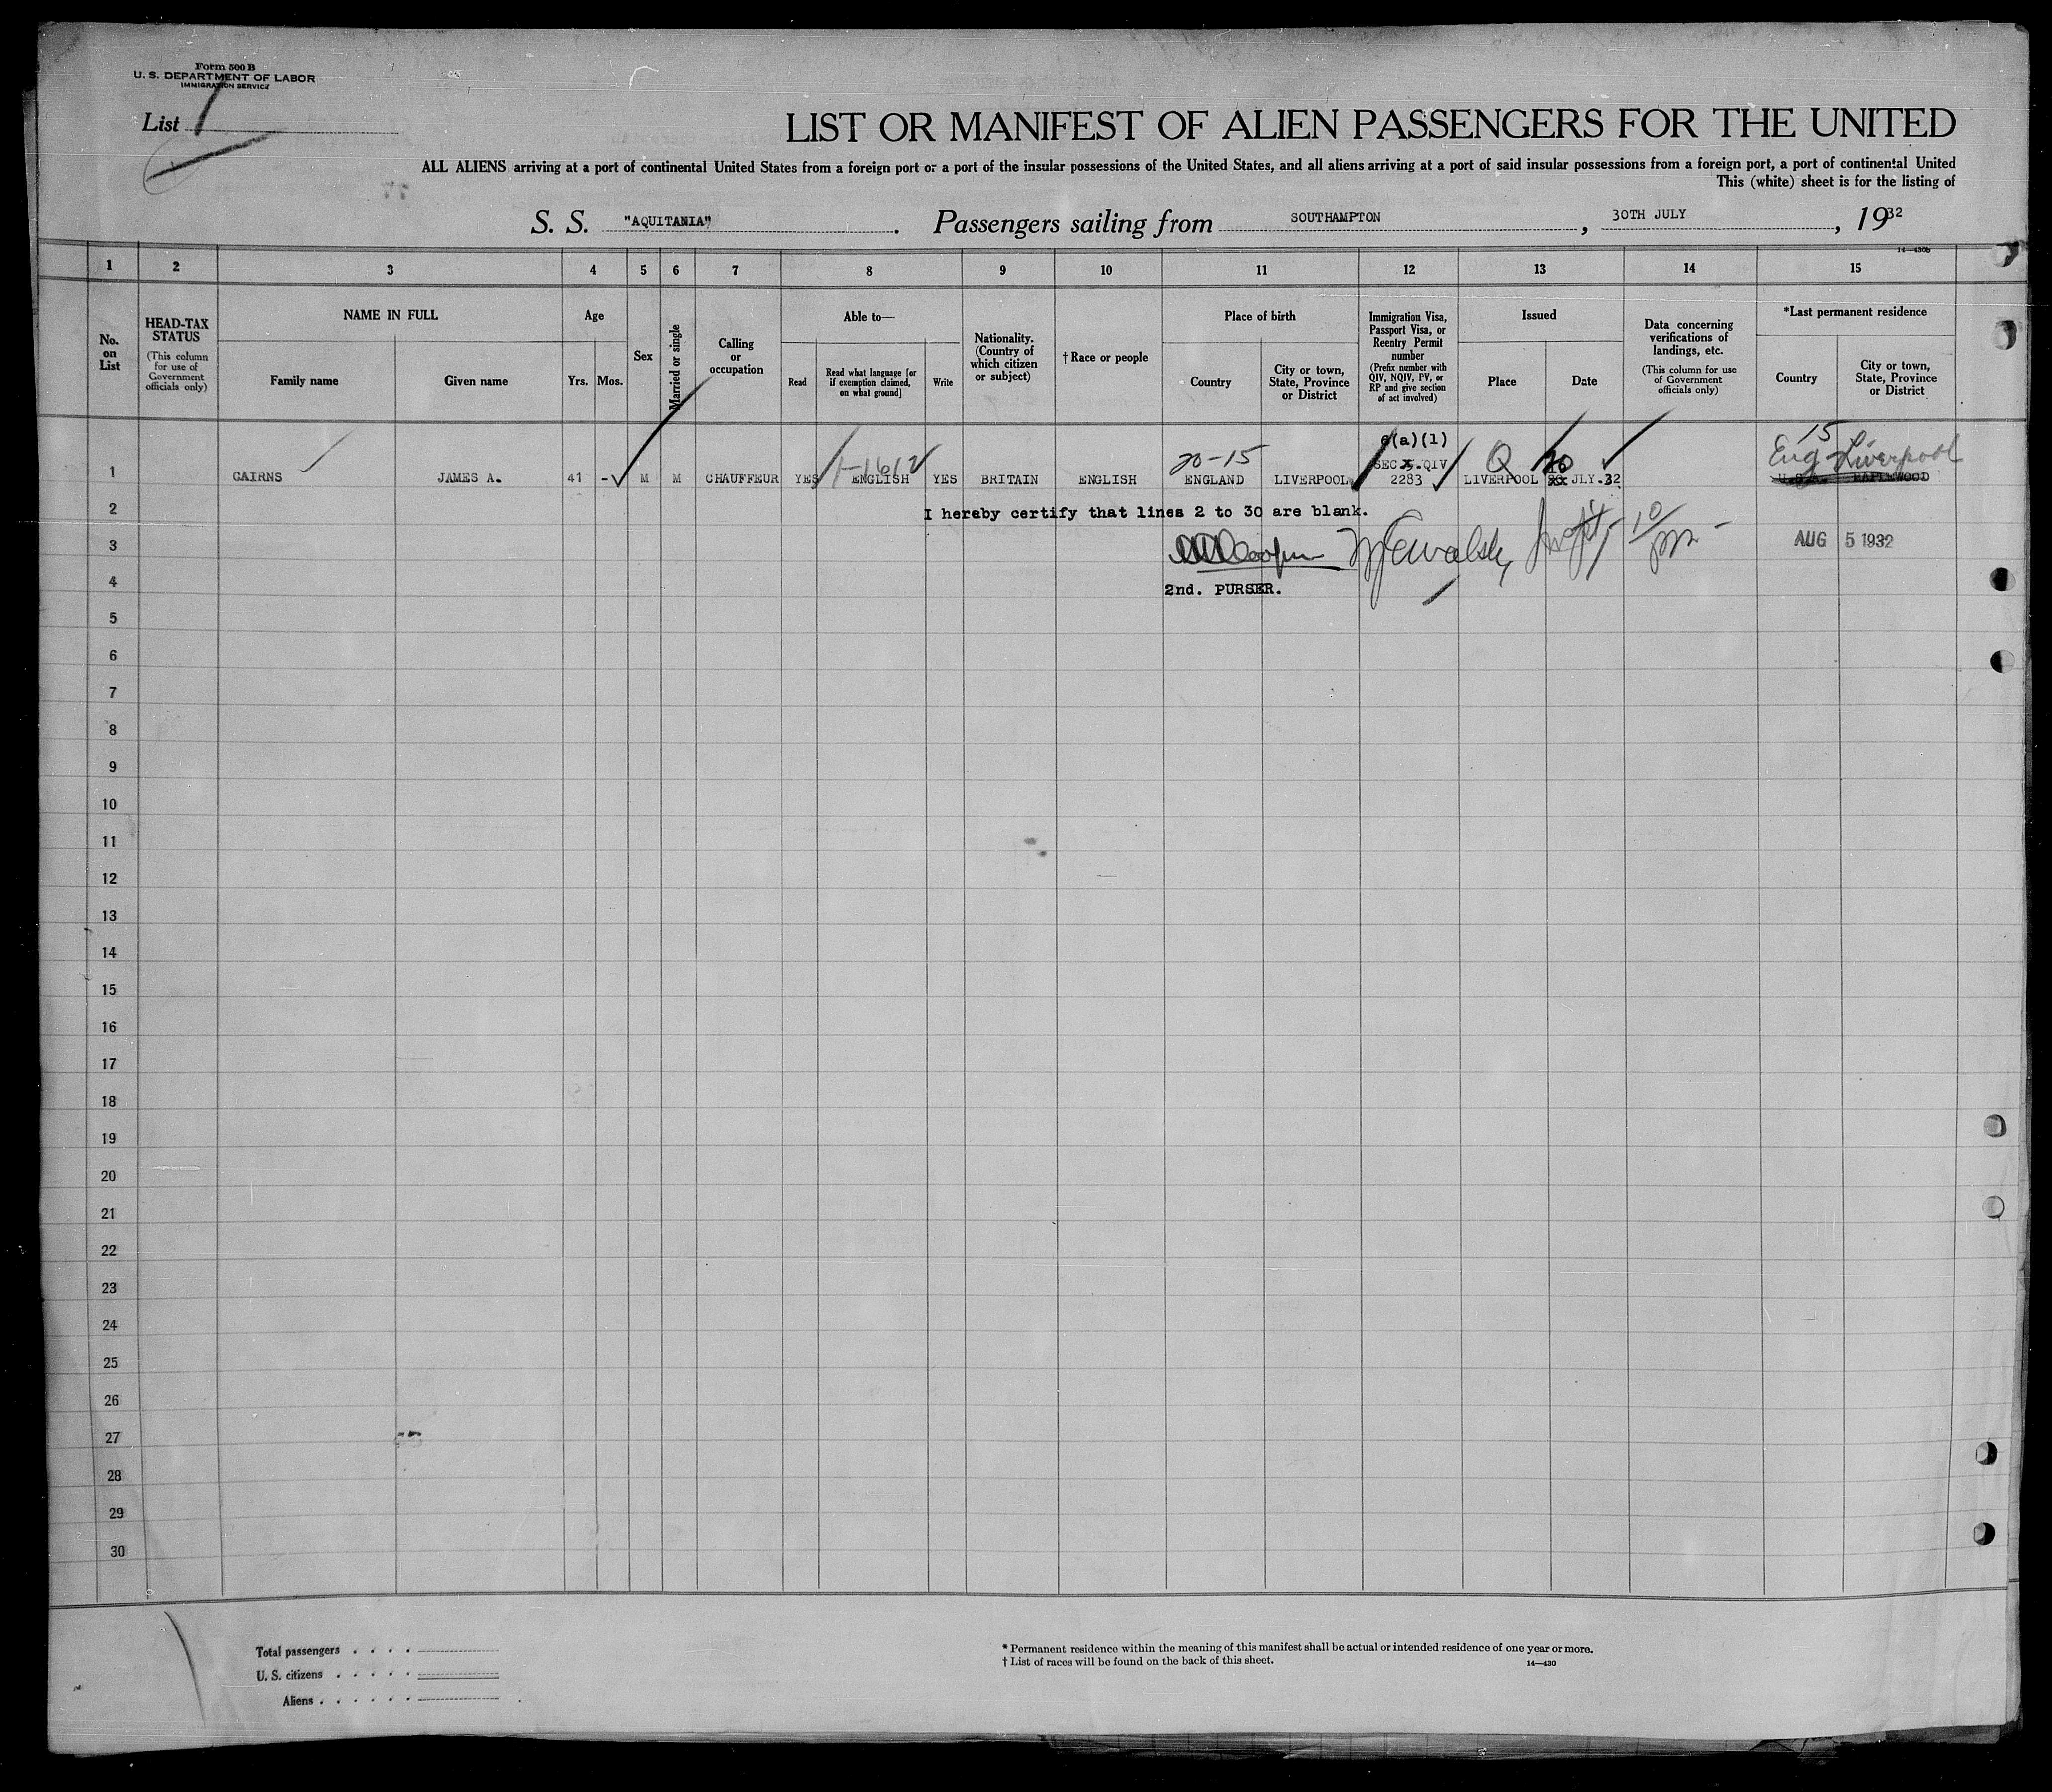 Form 500 B
U. S. DEPARTMENT OF LABOR
IMMIGRATION SERVICE
List 1
LIST OR MANIFEST OF ALIEN PASSENGERS FOR THE UNITED
ALL ALIENS arriving at a port of continental United States from a foreign port or a port of the insular possessions of the United States, and all aliens arriving at a port of said insular possessions from a foreign port, a port of continental United
This (white) sheet is for the listing of
S. S. "AQUITANIA". Passengers sailing from SOUTHAMPTON, 30TH JULY, 1932
14—430b
1 2 3 4 5 6 7 8 9 10 11 12 13 14 15
No. on List
HEAD-TAX STATUS (This column for use of Government officials only)
NAME IN FULL
Family name
Given name
Age
Yrs. Mos.
Sex
Married or single
Calling or occupation
Able to—
Read
Read what language [or if exemption claimed, on what ground]
Write
Nationality. (Country of which citizen or subject)
†Race or people
Place of birth
Country
City or town, State, Province or District
Immigration Visa, Passport Visa, or Reentry Permit number (Prefix number with QIV, NQIV, PV, or RP and give section of act involved)
Issued
Place
Date
Data concerning verifications of landings, etc. (This column for use of Government officials only)
*Last permanent residence
Country
City or town, State, Province or District
6(a)(1)
20-15
Q
20
15
Eng Liverpool
SEC QIV
1 CAIRNS JAMES A. 41 - M M CHAUFFEUR YES ENGLISH YES BRITAIN ENGLISH ENGLAND LIVERPOOL 2283 LIVERPOOL JLY.32 U.S.A. MAPLEWOOD
2 I hereby certify that lines 2 to 30 are blank.
3 AUG 5 1932
4 2nd. PURSER.
5
6
7
8
9
10
11
12
13
14
15
16
17
18
19
20
21
22
23
24
25
26
27
28
29
30
Total passengers . . . .
U. S. citizens . . . . .
Aliens . . . . . .
* Permanent residence within the meaning of this manifest shall be actual or intended residence of one year or more.
† List of races will be found on the back of this sheet.
14—430